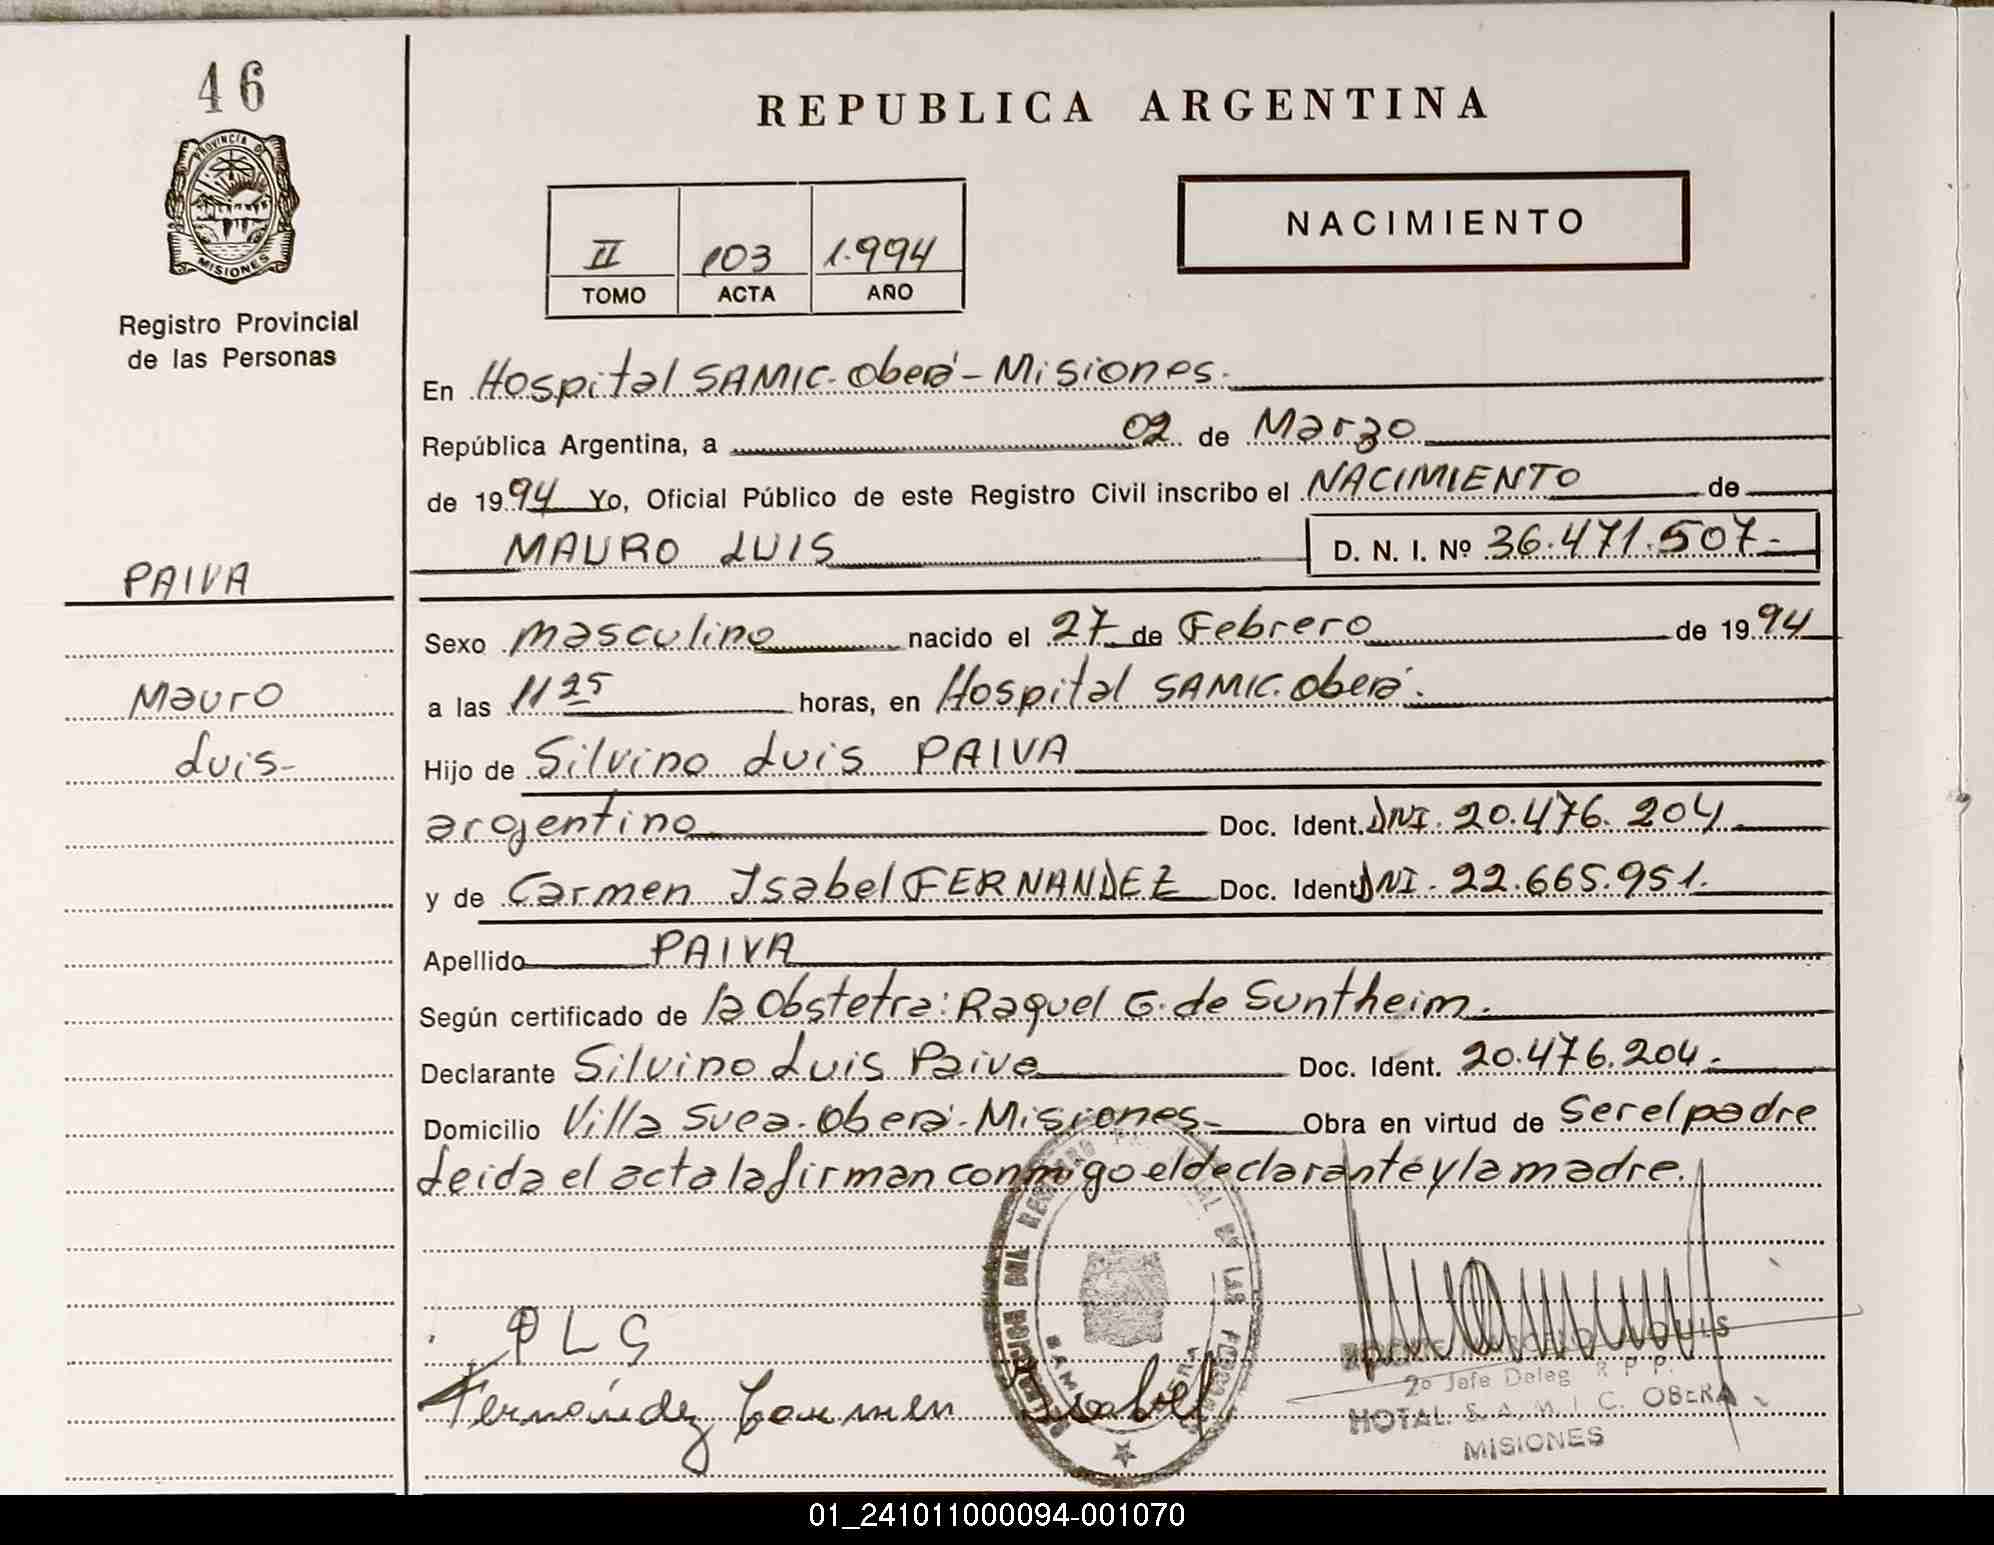 46
REPUBLICA ARGENTINA
PROVINCIA D
MISIONES
Registro Provincial
de las Personas
II 103 1.994
TOMO ACTA AÑO
NACIMIENTO
En Hospital SAMIC. Oberá - Misiones.
República Argentina, a 02 de Marzo
de 1994 Yo, Oficial Público de este Registro Civil inscribo el NACIMIENTO de
MAURO LUIS D. N. I. Nº 36.471.507.-
PAIVA
Mauro
Luis-
Sexo masculino nacido el 27 de Febrero de 1994
a las 11 25 horas, en Hospital SAMIC. Oberá.
Hijo de Silvino Luis PAIVA
argentino Doc. Ident. DNI. 20.476.204
y de Carmen Isabel FERNANDEZ Doc. Ident DNI. 22.665.951.
Apellido PAIVA
Según certificado de la Obstetra: Raquel G. de Suntheim.
Declarante Silvino Luis Paiva Doc. Ident. 20.476.204.-
Domicilio Villa Svea. Oberá - Misiones.- Obra en virtud de ser el padre
Leida el acta la firman conmigo el declarante y la madre.
PLG
Fernández Carmen Isabel
2º Jefe Deleg R. P. P.
HOTAL. S. A. M. I. C. OBERA
MISIONES
01_241011000094-001070